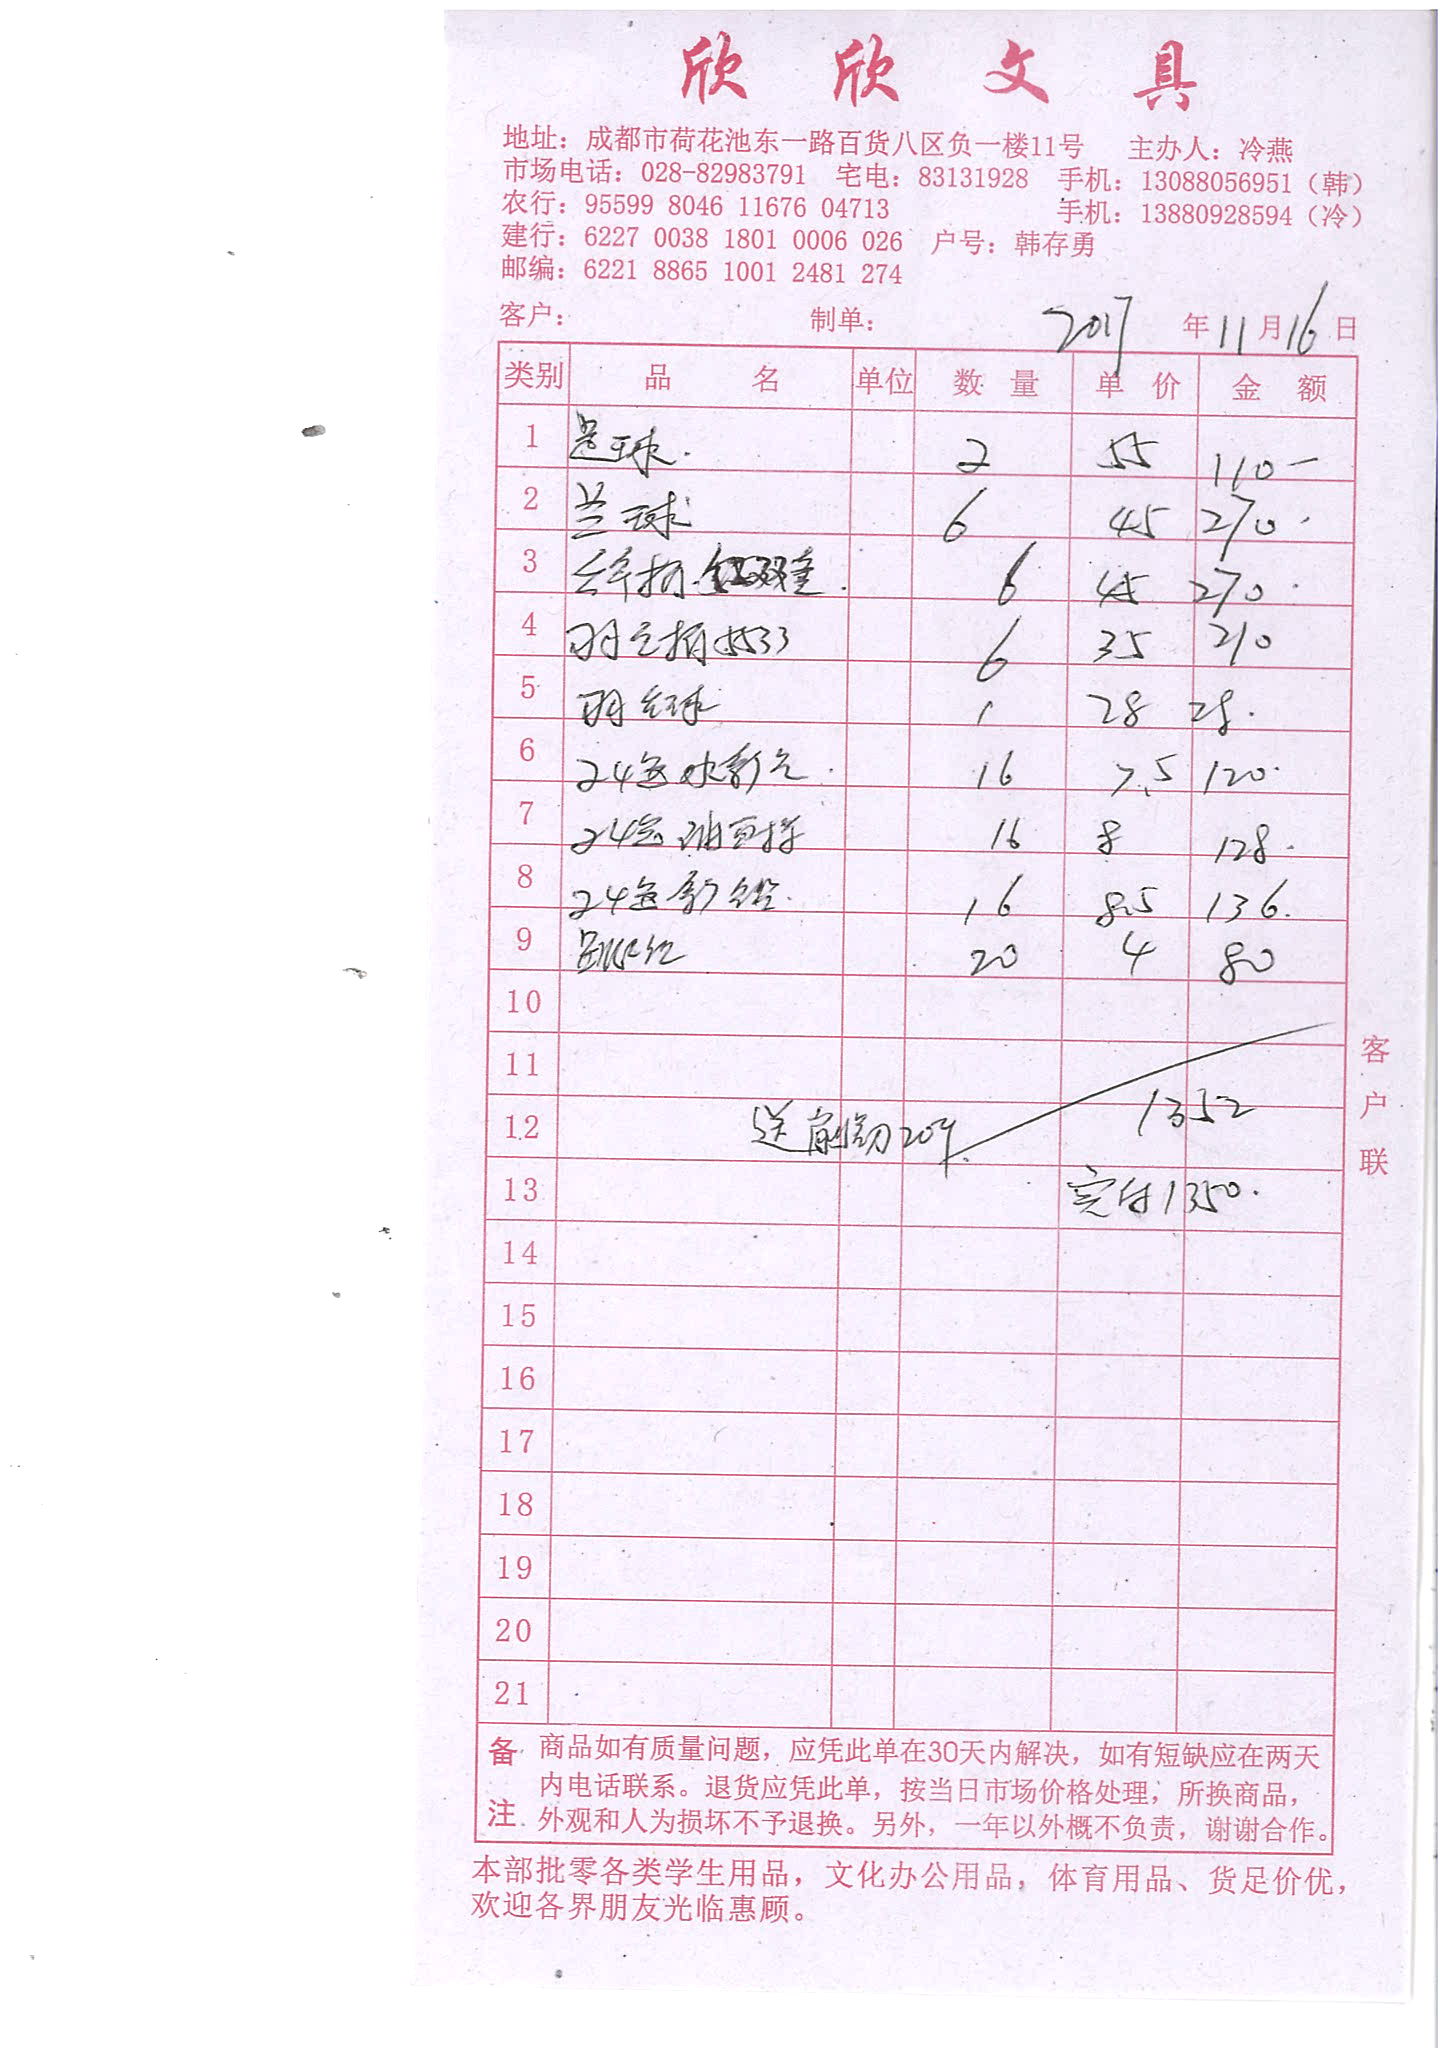 欣欣文具
地址：成都市荷花池东一路百货八区负一楼11号 主办人：冷燕
市场电话：028-82983791 宅电：83131928 手机：13088056951（韩）
农行：95599 8046 11676 04713 手机：13880928594（冷）
建行：6227 0038 1801 0006 026 户号：韩存勇
邮编：6221 8865 1001 2481 274
客户： 制单： 2017 年 11 月 16 日
类别 品名 单位 数量 单价 金额
1 足球. 2 55 110-
2 兰球 6 45 270.
3 双 6 45 270.
4 羽毛拍 533 6 35 210
5 羽毛球 1 28 28.
6 24色水彩 16 7.5 120.
7 24色油画棒 16 8 128.
8 24色彩铅. 16 8.5 136.
9 20 4 80
10
11
12 送 20 1352
13 实付1350.
14
15
16
17
18
19
20
21
客户联
备注 商品如有质量问题，应凭此单在30天内解决，如有短缺应在两天
内电话联系。退货应凭此单，按当日市场价格处理，所换商品，
外观和人为损坏不予退换。另外，一年以外概不负责，谢谢合作。
本部批零各类学生用品，文化办公用品，体育用品、货足价优，
欢迎各界朋友光临惠顾。